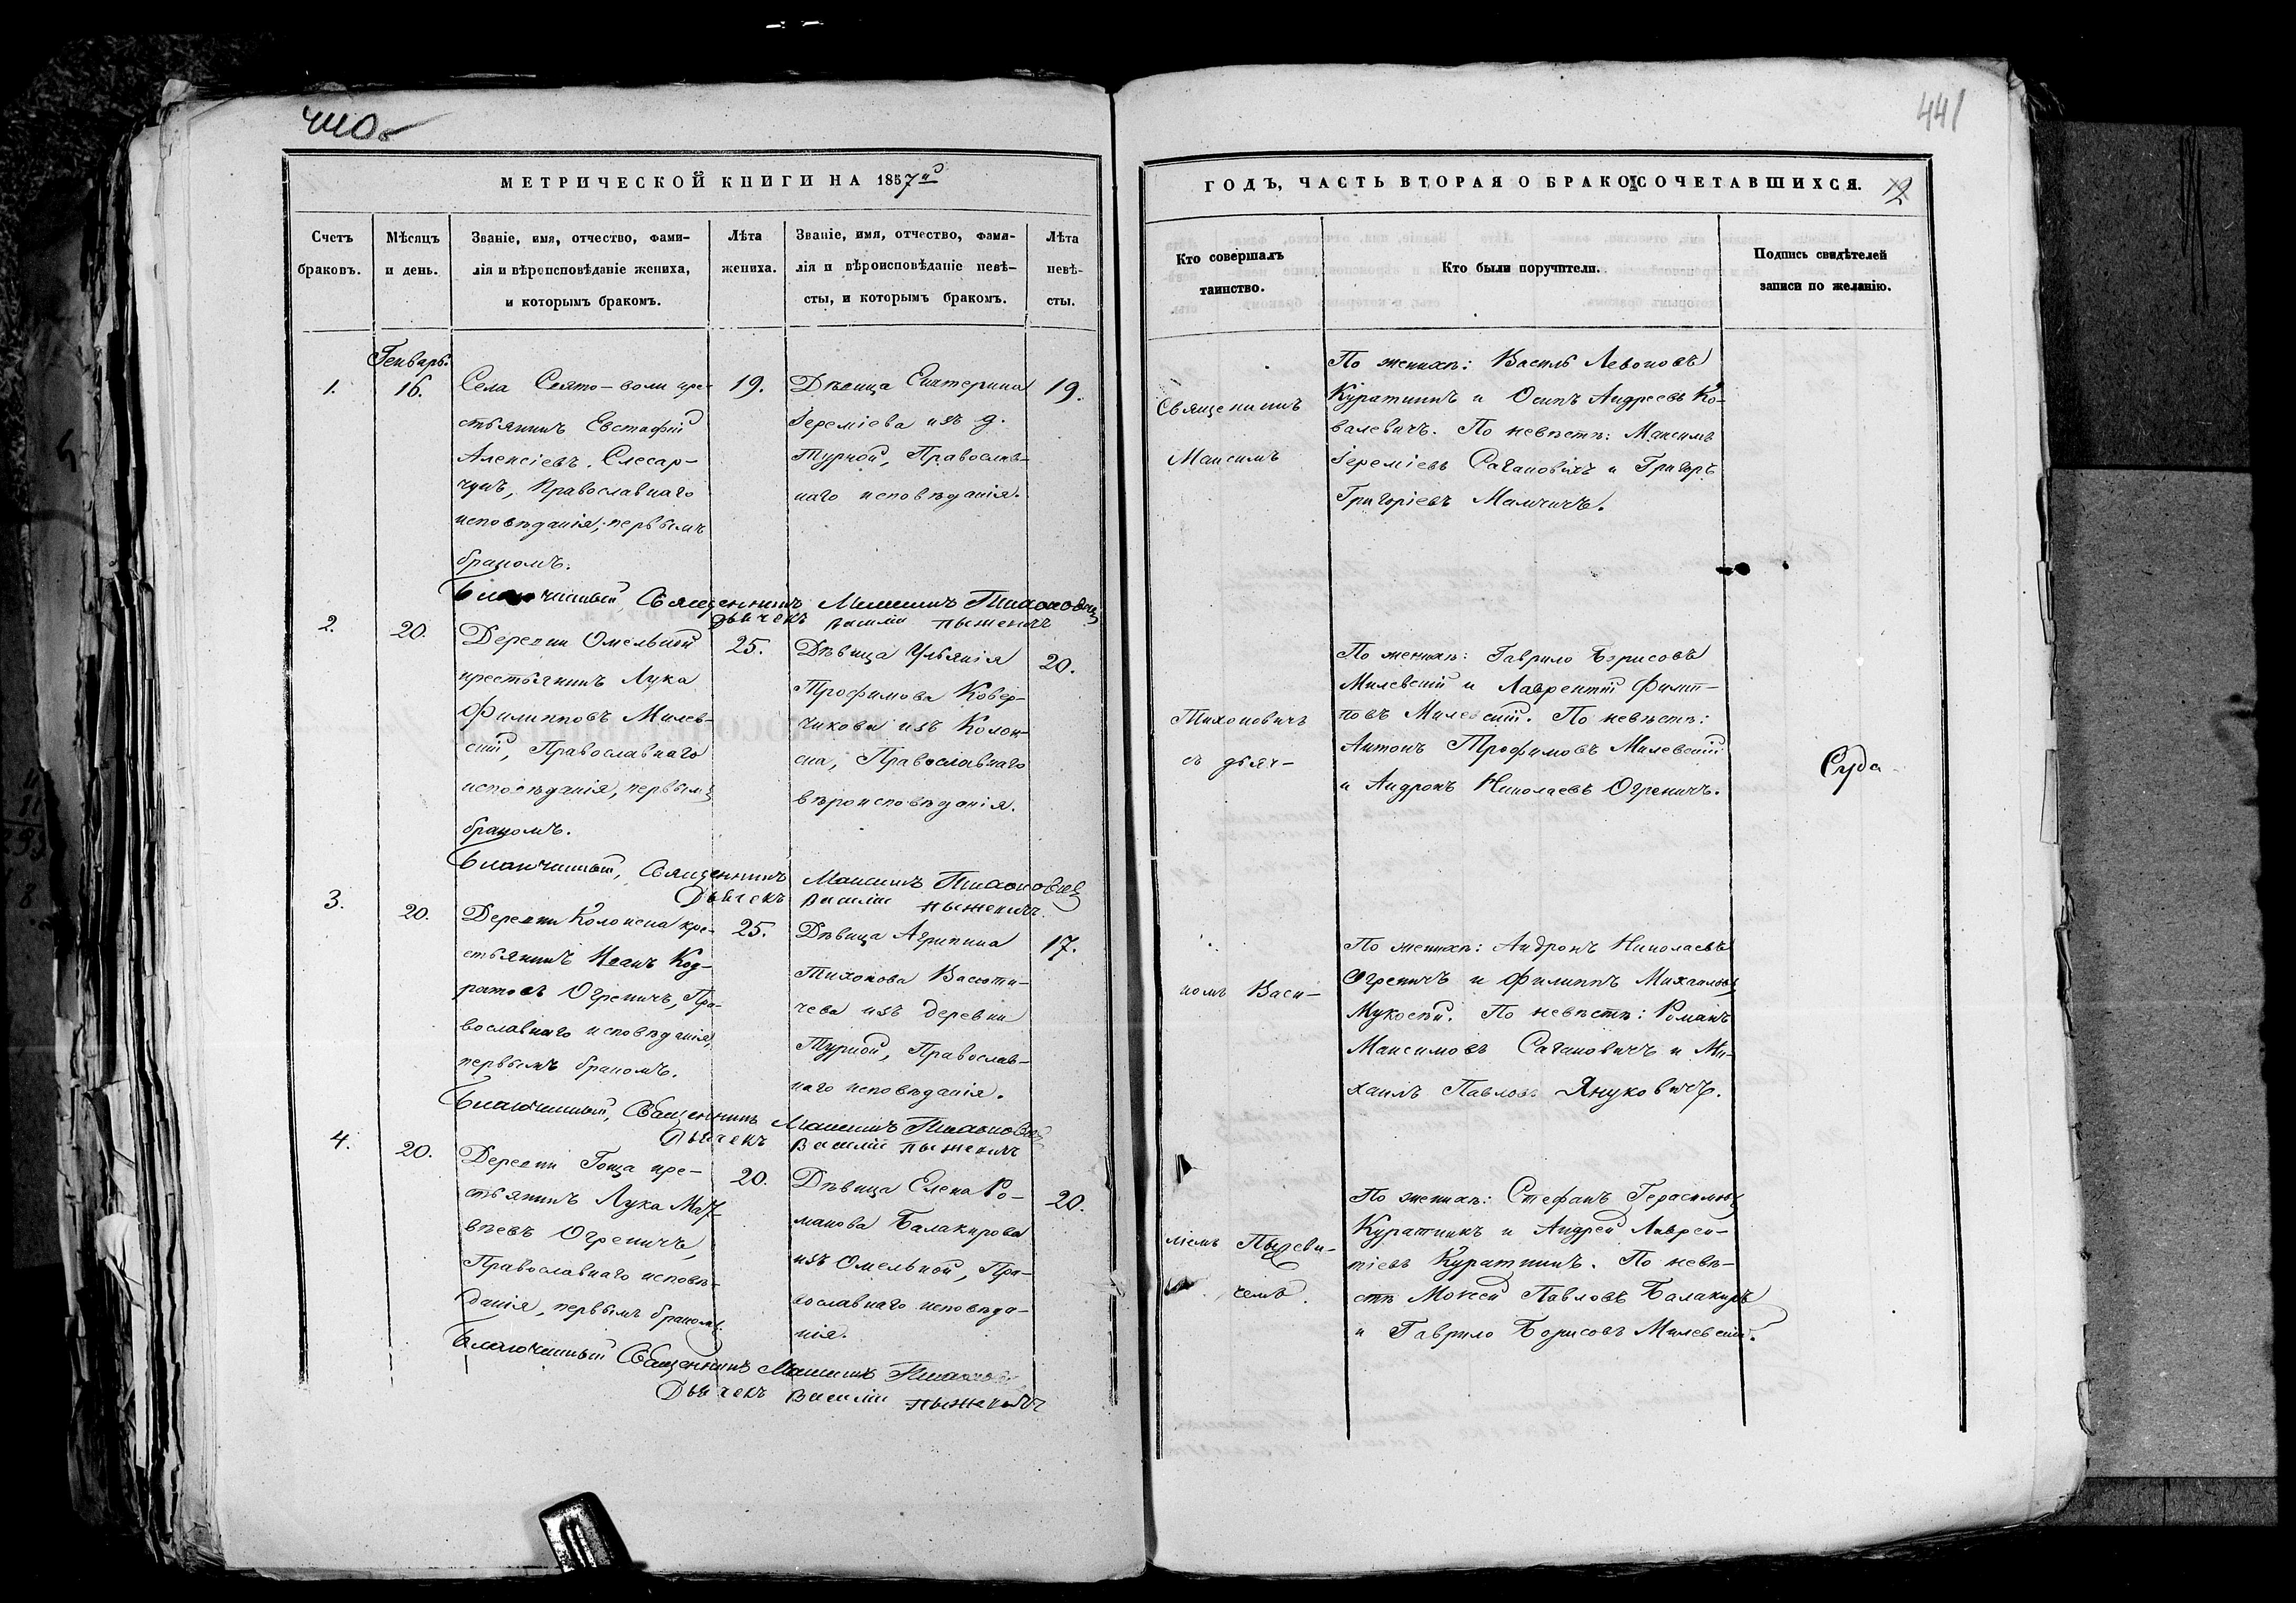 440 об
МЕТРИЧЕСКОЙ КНИГИ НА 1857й
Счетъ браковъ.
Мѣсяцъ и день.
Званіе, имя, отчество, фами-
лія и вѣроисповѣданіе жениха,
и которымъ бракомъ.
Лѣта жениха.
Званіе, имя, отчество, фами-
лія и вѣроисповѣданіе невѣ-
сты, и которымъ бракомъ.
Лѣта невѣ-
сты.
Генварь.
1.
16.
Села Свято-воли кре-
стьянинъ Евстафій
Алексіевъ Слесар-
чукъ, Православнаго
исповѣданія, первымъ
бракомъ.
19.
Дѣвица Екатерина
Іереміева изъ д.
Турной, Православ-
наго исповѣданія.
19.
Благочинный, Священникъ Максимъ Тихоновичъ
Дьячекъ Василій Пыжевичъ
2.
20.
Деревни Омельной
крестьянинъ Лука
Филипповъ Милев-
скій, Православнаго
исповѣданія, первымъ
бракомъ.
25.
Дѣвица Ульянія
Трофимова Ковер-
чикова изъ Колон-
ска, Православнаго
вѣроисповѣданія.
20.
Благочинный, Священникъ Максимъ Тихоновичъ
Дьячекъ Василій Пыжевичъ
3.
20.
Деревни Колонска кре-
стьянинъ Иванъ Код-
ратовъ Огревичъ, Пра-
вославнаго исповѣданія,
первымъ бракомъ.
25.
Дѣвица Агрипина
Тихонова Васюти-
чева изъ деревни
Турной, Православ-
наго исповѣданія.
17.
Благочинный, Священникъ Максимъ Тихоновичъ
Дьячекъ Василій Пыжевичъ
4.
20.
Деревни Гоща кре-
стьянинъ Лука Мат-
вѣевъ Огревичъ,
Православнаго исповѣ-
данія, первымъ бракомъ.
20.
Дѣвица Елена Ро-
манова Балакирова
изъ Омельной, Пра-
вославнаго исповѣда-
нія.
20.
Благочинный Священникъ Максимъ Тихоновичъ
Дьячекъ Василій Пыжевичъ
441
ГОДЪ, ЧАСТЬ ВТОРАЯ О БРАКОСОЧЕТАВШИХСЯ.
Кто совершалъ
таинство.
Кто были поручители.
Подпись свидѣтелей
записи по желанію.
Священникъ
Максимъ
Тихоновичъ
съ дьяч-
комъ Васи-
ліемъ Пыжеви-
чемъ.
По женихѣ: Василь Левоновъ
Куратникъ и Осипъ Андреевъ Ко-
валевичъ. По невѣстѣ: Максимъ
Іереміевъ Сачановичъ и Григоръ
Григоріевъ Мамчичъ.
По женихѣ: Гаврило Борисовъ
Милевскій и Лаврентій Филип-
повъ Милевскій. По невѣстѣ:
Антонъ Трофимовъ Милевскій
и Андронъ Николаевъ Огревичъ.
Суда
По женихѣ: Андронъ Николаевъ
Огревичъ и Филиппъ Михаиловъ
Мукосѣй. По невѣстѣ: Романъ
Максимовъ Сачановичъ и Ми-
хаилъ Павловъ Януковичъ.
По женихѣ: Стефанъ Герасимовъ
Куратникъ и Андрей Лаврен-
тіевъ Куратникъ. По невѣ-
стѣ Мокей Павловъ Балакиръ
и Гаврило Борисовъ Милевскій.